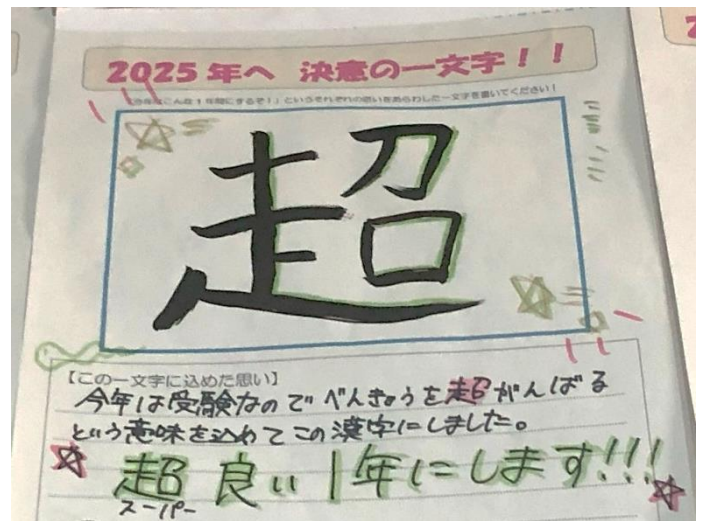 2025年へ 決意の一文字！！
「今年はこんな1年間にするぞ！」というそれぞれの思いをあらわした一文字を書いてください！
超
【この一文字に込めた思い】
今年は受験なのでべんきょうを超がんばる
という意味を込めてこの漢字にしました。
超良い1年にします!!!
スーパー